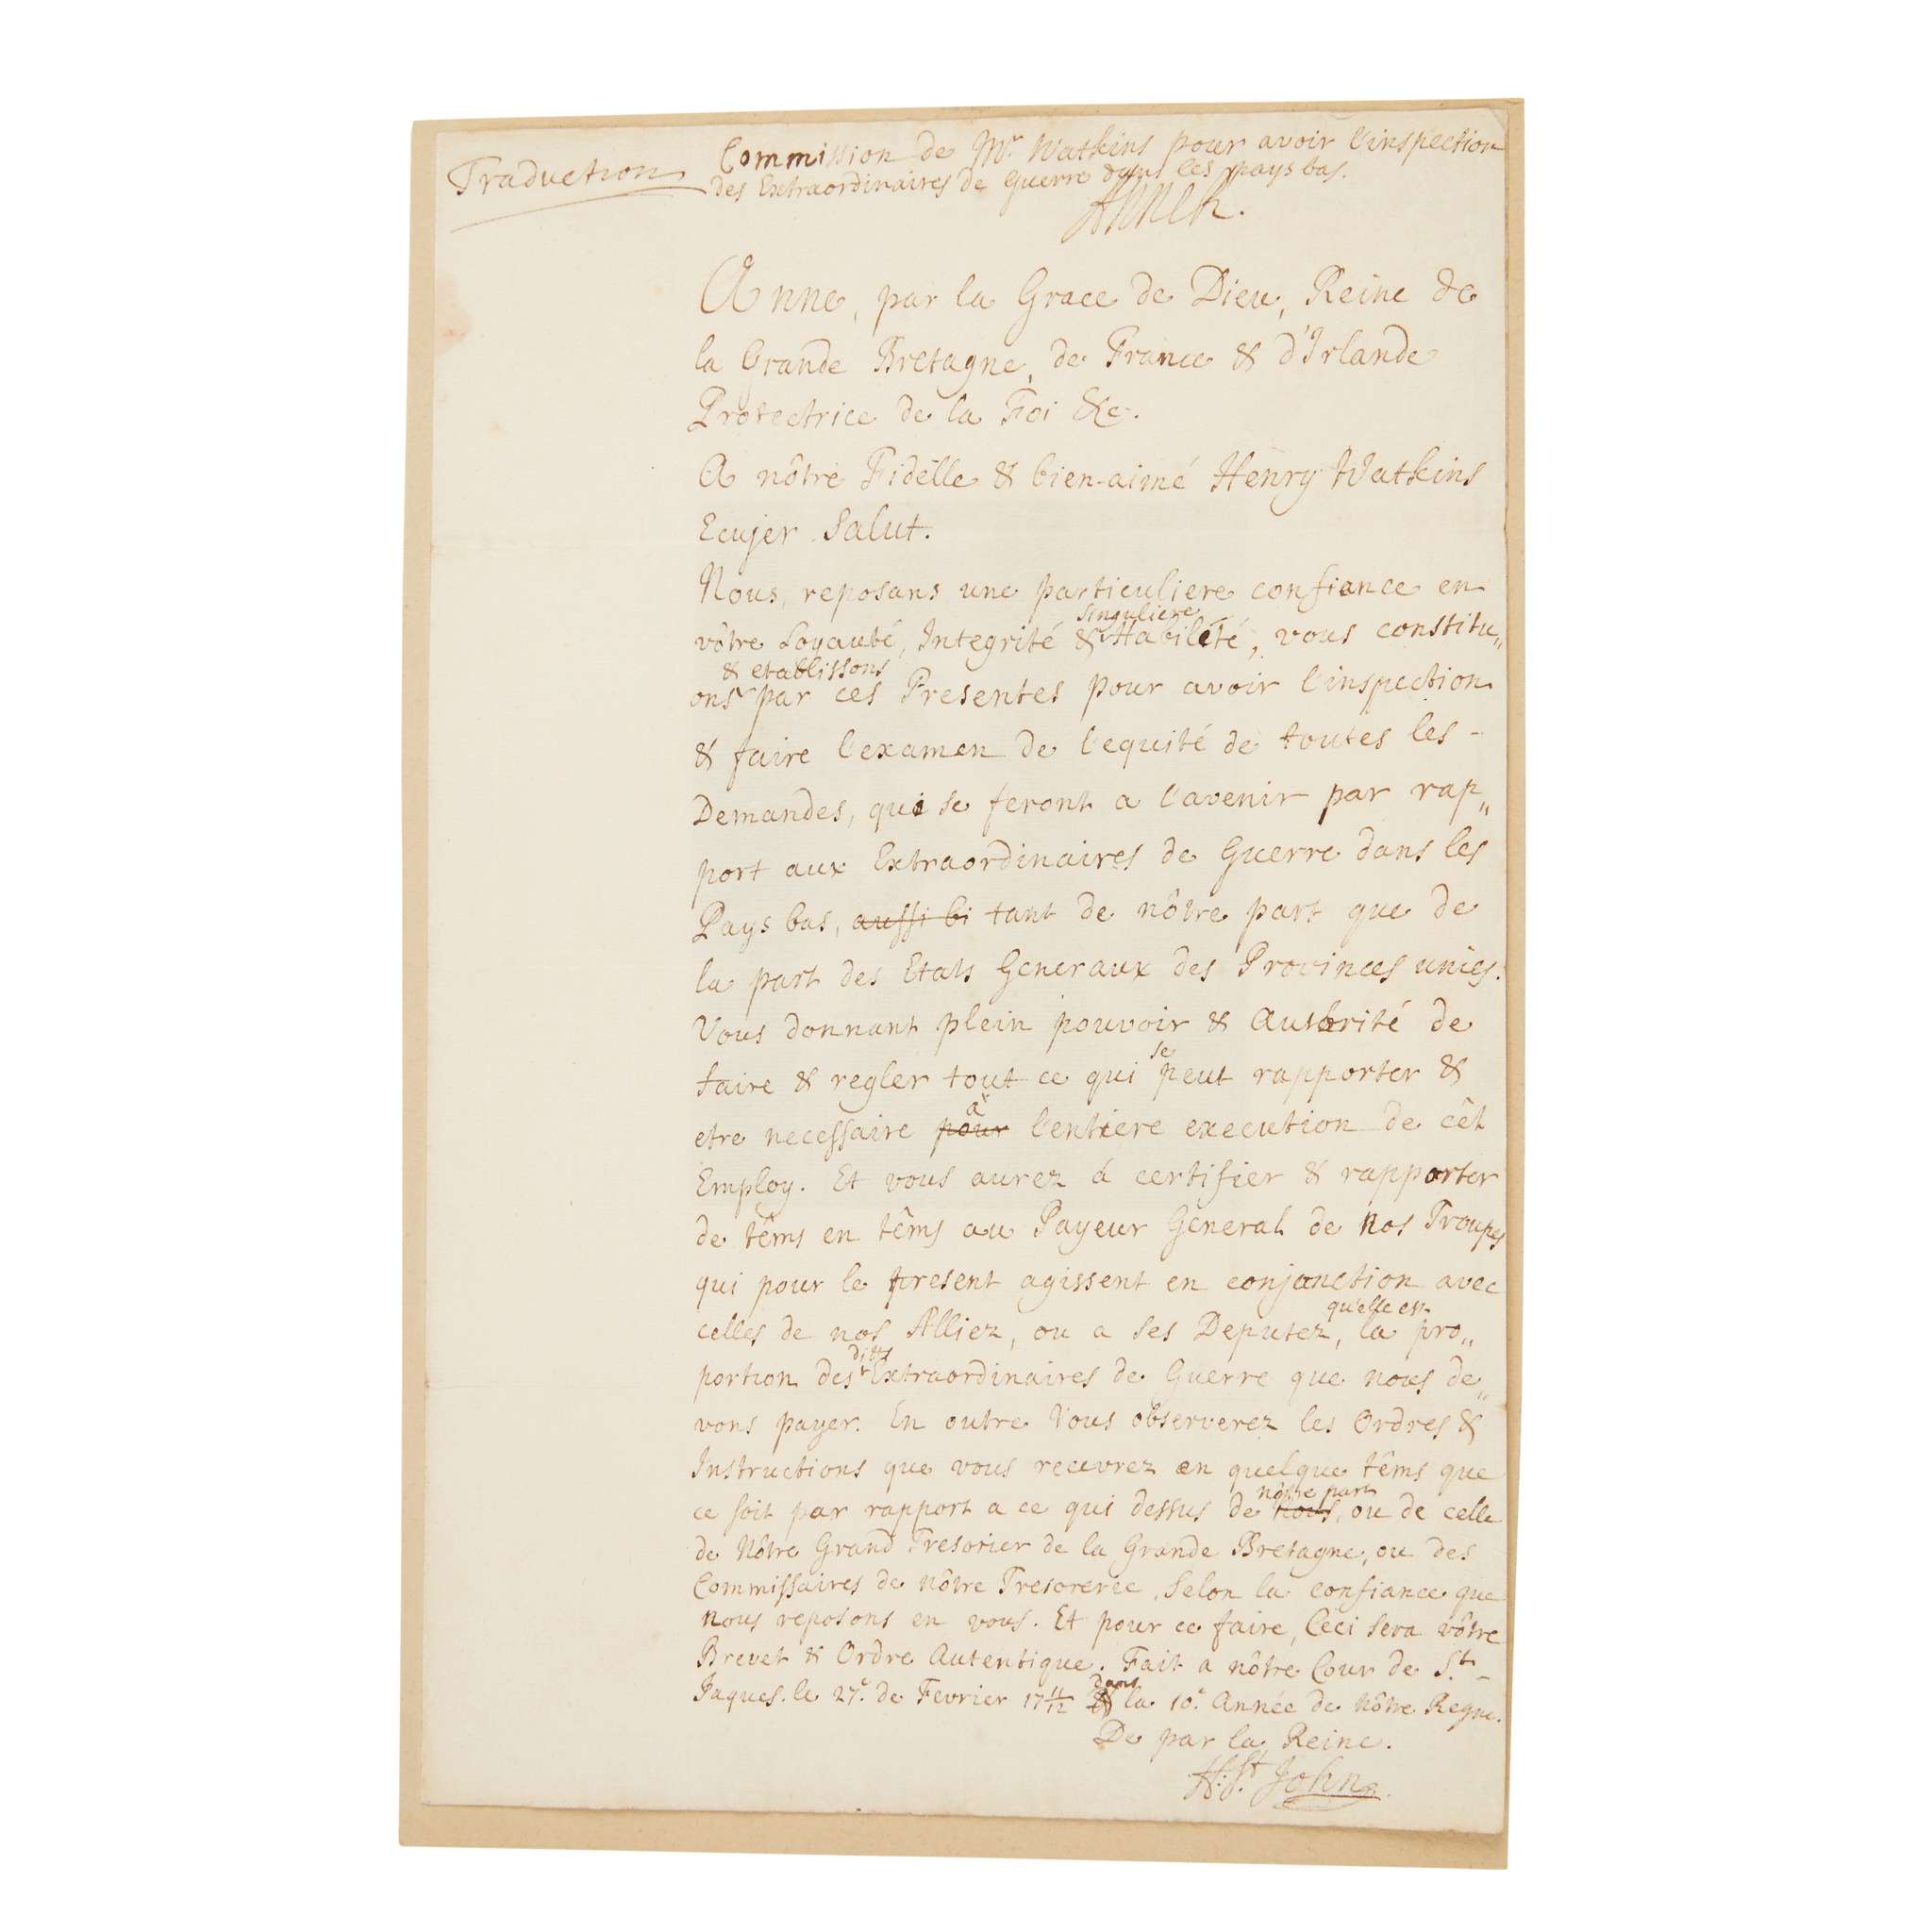 Traduction
Commission de Mr. Watkins pour avoir l'inspection
des Extraordinaires de Guerre dans les pays bas.
AnneR.
Anne, par la Grace de Dieu, Reine de
la Grande Bretagne, de France & d'Irlande
Protectrice de la Foi &c.
A nôtre Fidêlle & bien-aimé Henry Watkins
Ecujer Salut.
Nous, reposans une particuliere confiance en
singuliere
vôtre Loyauté, Integrité & Habileté, vous constitu„
& etablissons
ons par ces Presentes pour avoir l'inspection
& faire l'examen de l'equité de toutes les -
Demandes, qui se feront a l'avenir par rap„
port aux Extraordinaires de Guerre dans les
Pays bas, aussi bi tant de nôtre part que de
la part des Etats Generaux des Provinces unies.
Vous donnant plein pouvoir & Autorité de
se
faire & regler tout ce qui peut rapporter &
à
etre necessaire pour l'entiere execution de cêt
Employ. Et vous aurez à certifier & rapporter
de têms en têms au Payeur General de nos Troupes
qui pour le present agissent en conjonction avec
qu'elle est
celles de nos Alliez, ou a ses Deputez, la pro„
dits
portion des Extraordinaires de Guerre que nous de„
vons payer. En outre Vous observerez les Ordres &
Instructions que vous recevrez en quelque têms que
nôtre part
ce soit par rapport a ce qui dessus de nous, ou de celle
de Nôtre Grand Tresorier de la Grande Bretagne, ou des
Commissaires de nôtre Tresorerie, Selon la confiance que
nous reposons en vous. Et pour ce faire, Ceci sera vôtre
Brevet & Ordre Autentique. Fait a nôtre Cour de St. -
dans
Jaques. le 27e. de Fevrier 17 11/12 & la 10e. Année de Nôtre Regne.
De par la Reine.
H: St. John